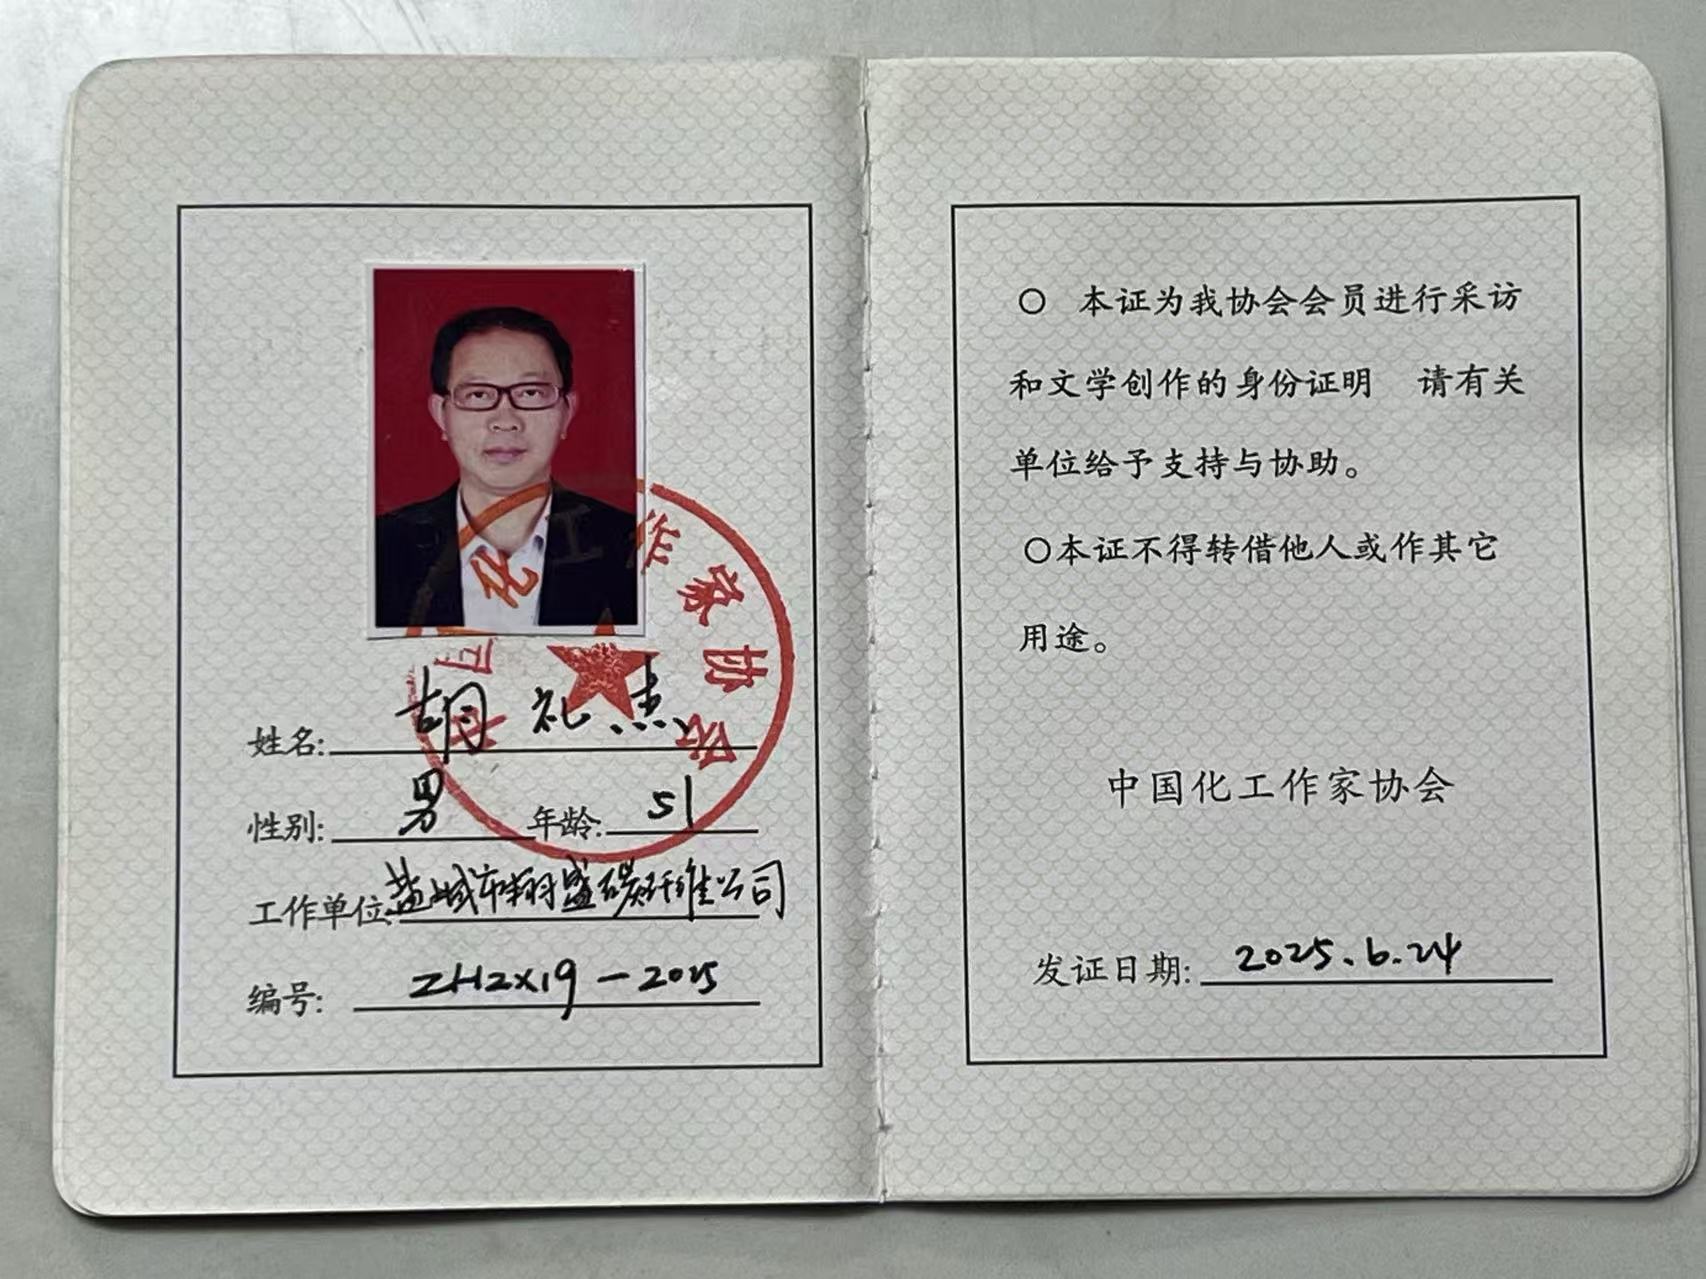 中国化工作家协会
姓名: 胡礼杰
性别: 男 年龄: 51
工作单位: 盐城市翔盛碳纤维公司
编号: ZHZX19-2025
○ 本证为我协会会员进行采访
和文学创作的身份证明 请有关
单位给予支持与协助。
○本证不得转借他人或作其它
用途。
中国化工作家协会
发证日期: 2025.6.24